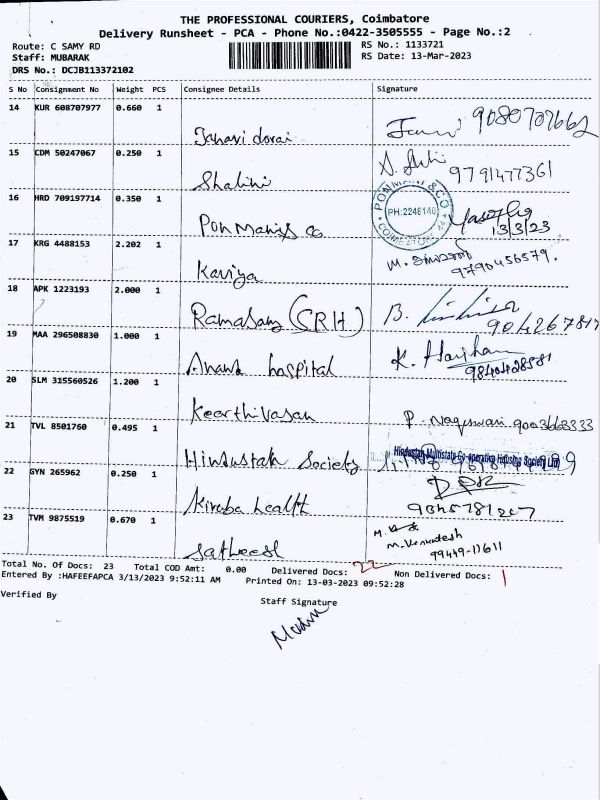 THE PROFESSIONAL COURIERS, Coimbatore
Delivery Runsheet - PCA - Phone No.:0422-3505555 - Page No.:2
Route: C SAMY RD
RS No.: 1133721
Staff: MUBARAK
RS Date: 13-Mar-2023
DRS No.: DCJB113372102
S No Consignment No Weight PCS Consignee Details Signature
14 KUR 608707977 0.660 1
Janavi dorai 9080707662
15 CDM 50247067 0.250 1
Shalini 9791477361
16 HRD 709197714 0.350 1
PONMANI & CO
PH:2246140
COIMBATORE
Pon Manis Co 13/3/23
17 KRG 4488153 2.202 1
Kaviya M. 9790456579.
18 APK 1223193 2.000 1
Ramasamy (SRH) B. 904267817
19 MAA 296508830 1.000 1
Anand hospital K. Harihan
9840428581
20 SLM 315560526 1.200 1
Keerthivasan P. Nageswari 9003663333
21 TVL 8501760 0.495 1
Hindustan Society Hindustan Multistate Co-operative Housing Society Ltd
22 GYN 265962 0.250 1
Kiruba health 9345781207
23 TVM 9875519 0.670 1
Satheesh M. Venkatesh
99449-17611
Total No. Of Docs: 23 Total COD Amt: 0.00 Delivered Docs: 22 Non Delivered Docs: 1
Entered By :HAFEEFAPCA 3/13/2023 9:52:11 AM Printed On: 13-03-2023 09:52:28
Verified By
Staff Signature